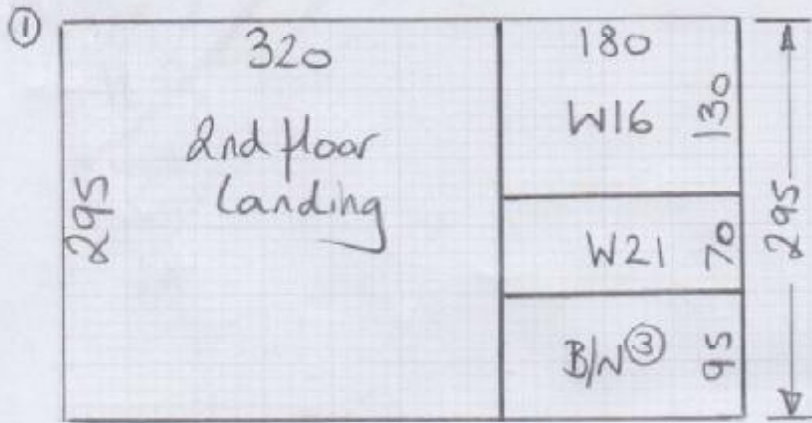 ①
320
2nd floor
landing
295
180
W16
130
W21
70
B/N③
95
295